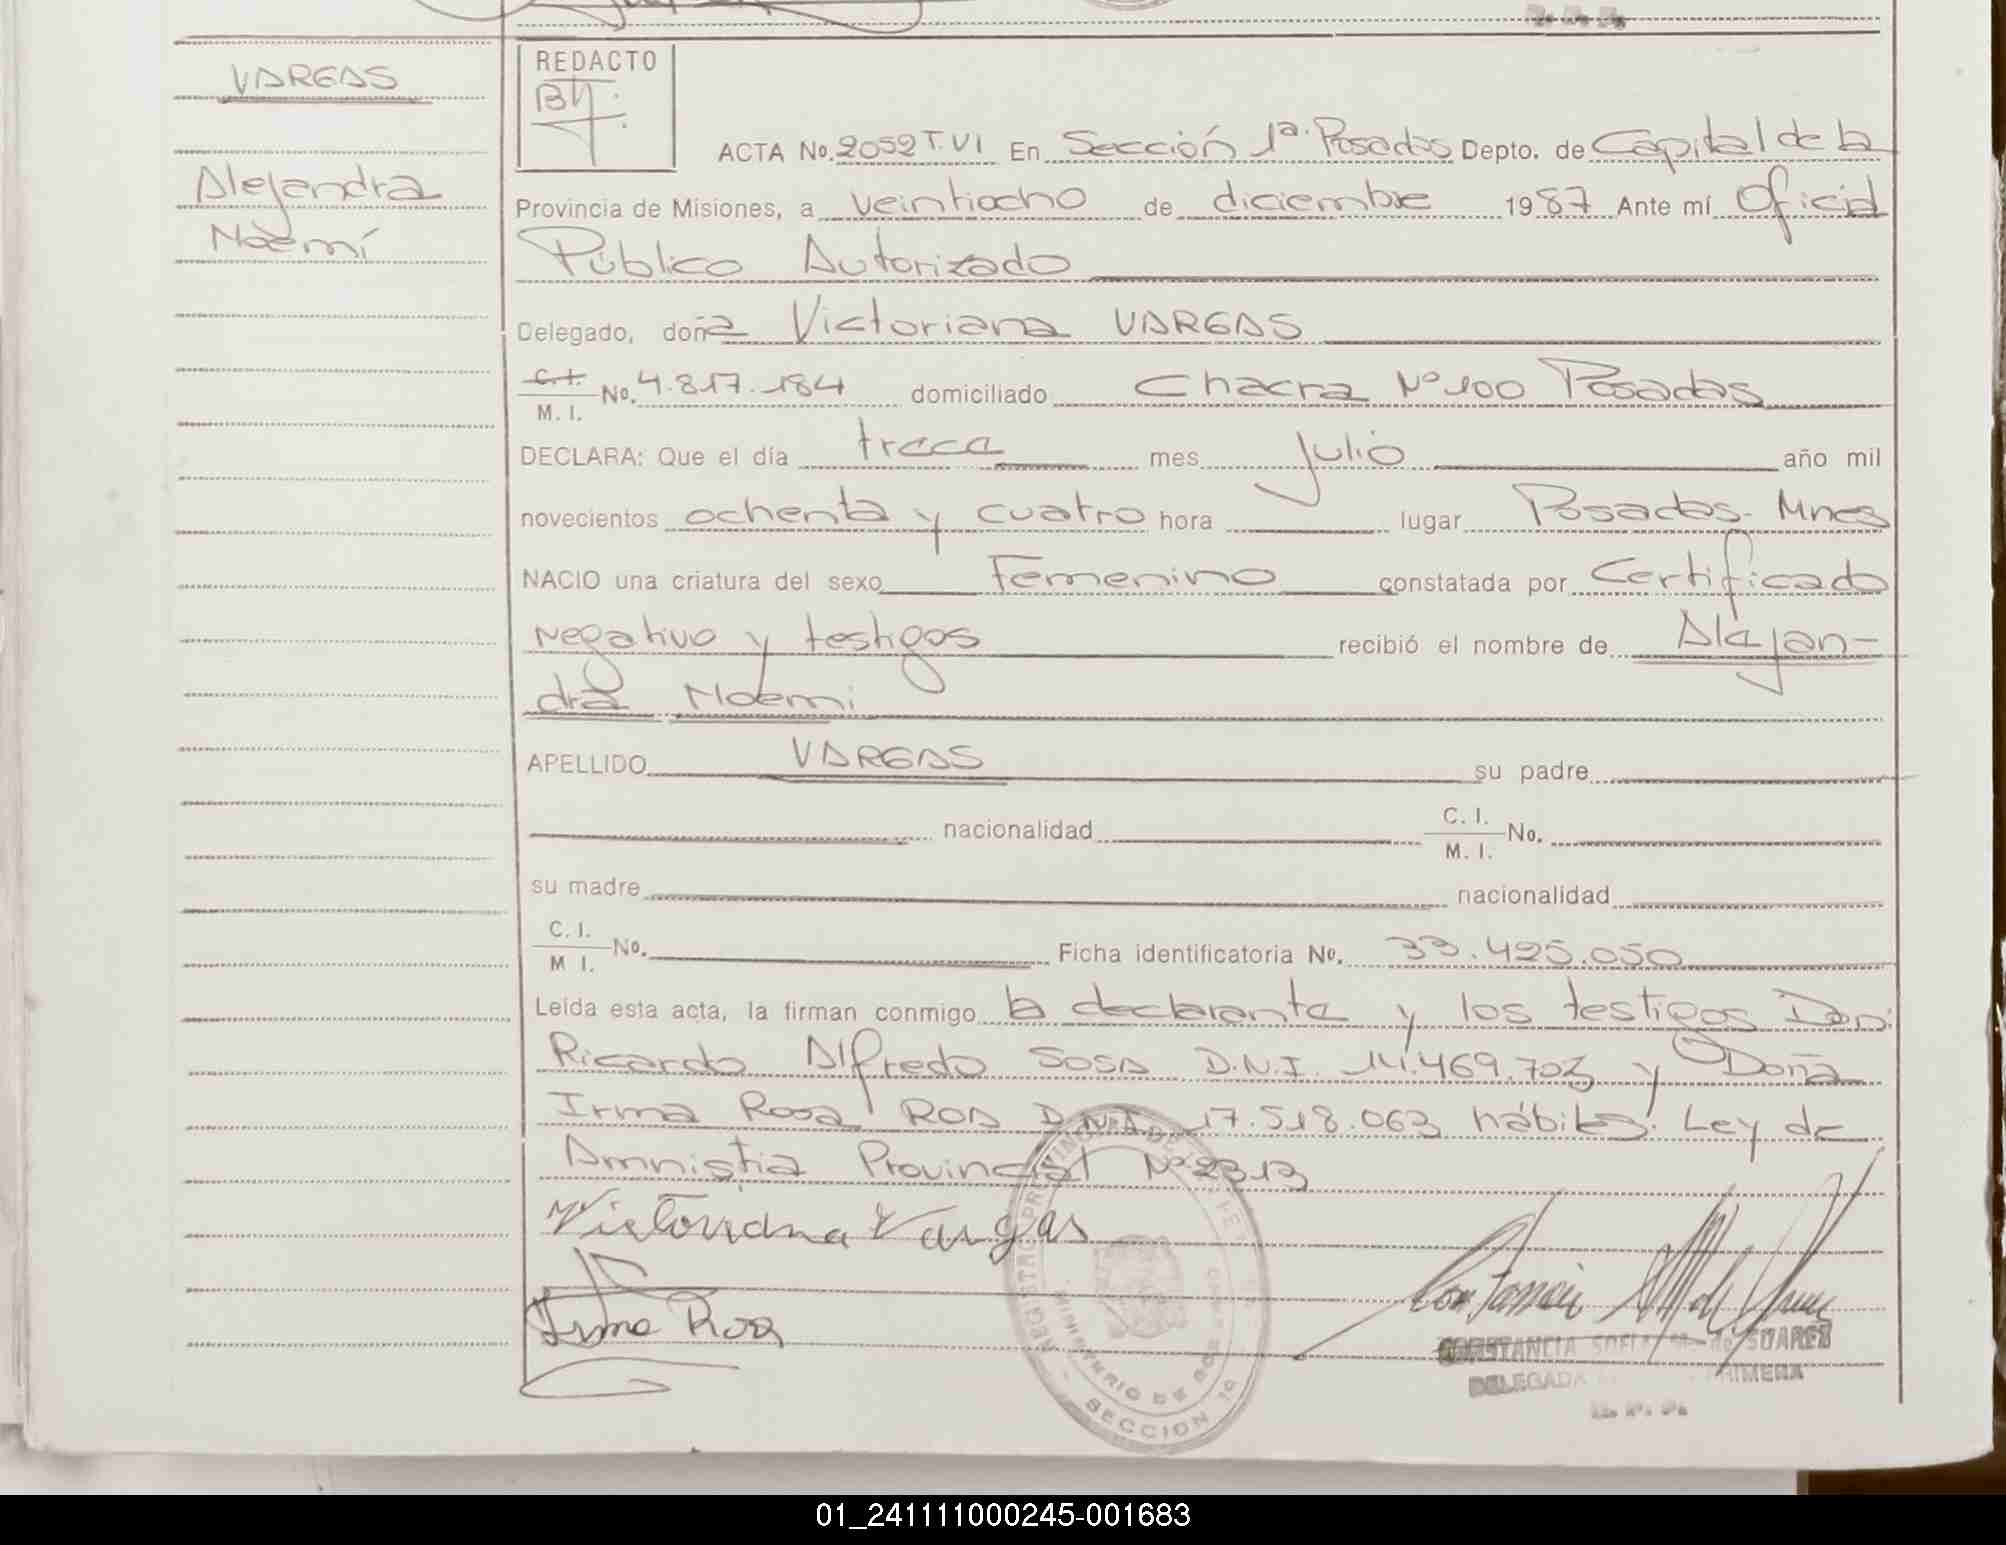 VARGAS
Alejandra
Noemí
REDACTO
ACTA No. 2052 T. VI En Sección 1ª. Posadas Depto. de Capital de la
Provincia de Misiones, a veintiocho de diciembre 1987 Ante mí Oficial
Público Autorizado
Delegado, doña Victoriana VARGAS
C. I. M. I. No. 4.817.184 domiciliado Chacra Nº 100 Posadas
DECLARA: Que el día trece mes Julio año mil
novecientos ochenta y cuatro hora lugar Posadas - Mnes
NACIO una criatura del sexo Femenino constatada por Certificado
negativo y testigos recibió el nombre de Alejan-
dra Noemi
APELLIDO VARGAS su padre
nacionalidad C. I. M. I. No.
su madre nacionalidad
C. I. M I. No. Ficha identificatoria No. 33.425.050
Leída esta acta, la firman conmigo la declarante y los testigos Don
Ricardo Alfredo SOSA D.N.I. 14.469.703 y Doña
Irma Rosa ROA D.N.I. 17.518.063 hábiles. Ley de
Amnistia Provincial Nº 2313
Victoriana Vargas
Irma Roa
CONSTANCIA SOFIA M. de SUAREZ
DELEGADA PRIMERA
MINISTERIO DE GOB
SECCION 1a
01_241111000245-001683